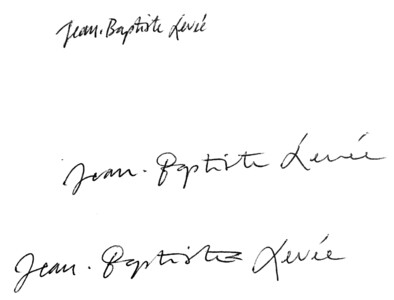 Jean-Baptiste Levée
Jean-Baptiste Levée
Jean-Baptiste Levée